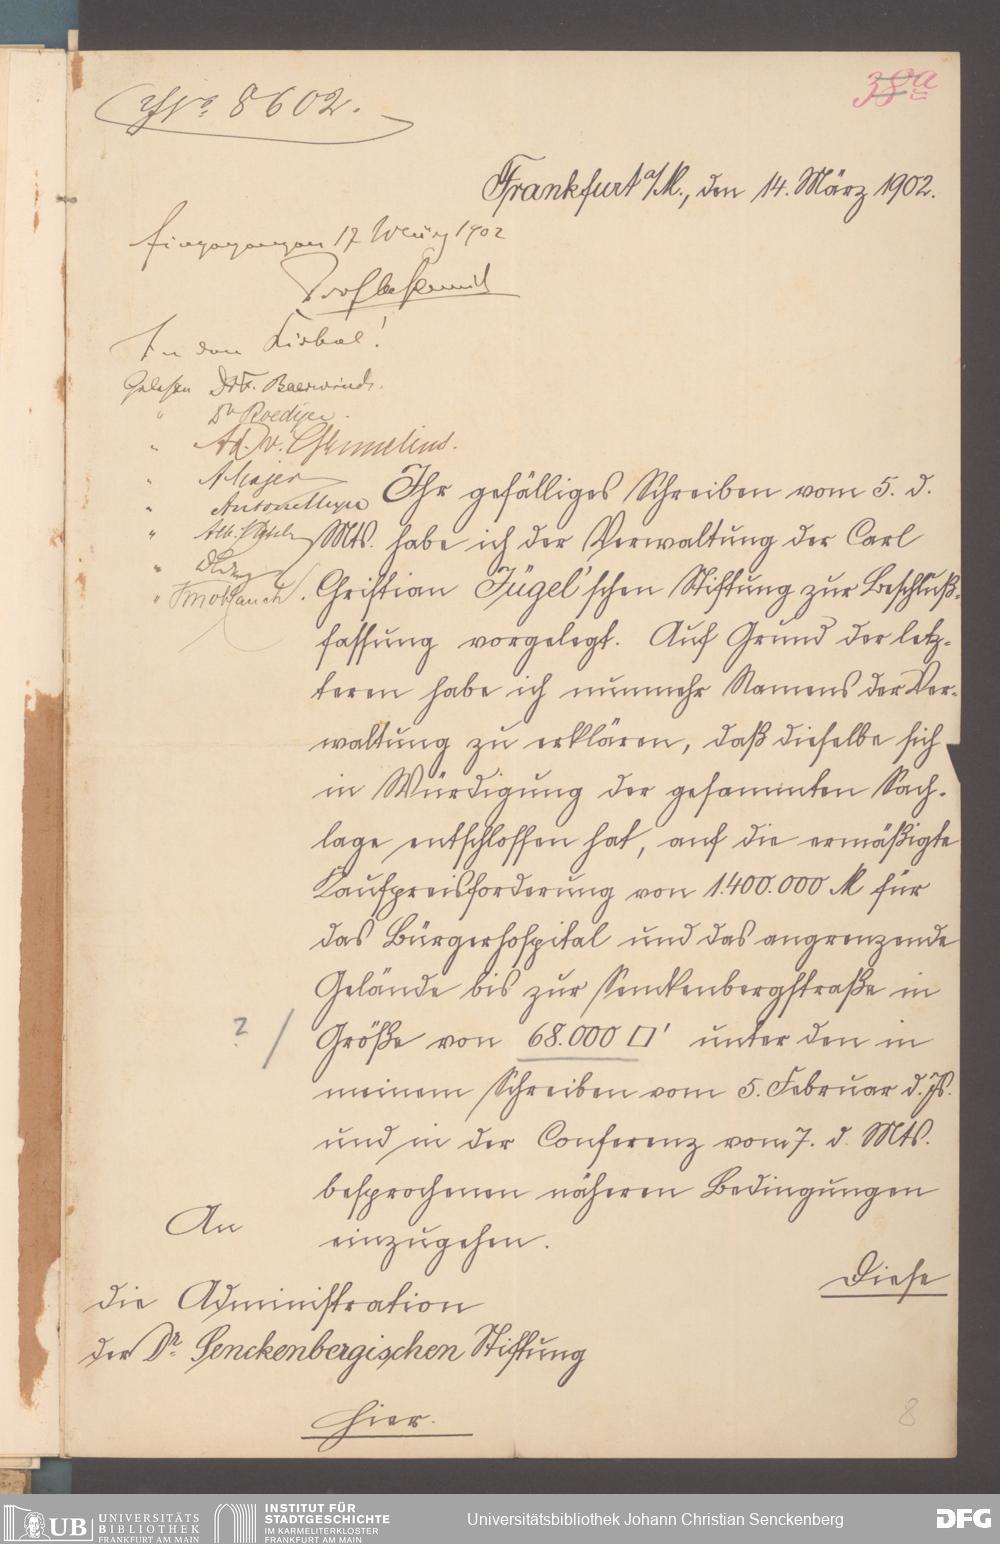 No 8602.
38a
Frankfurt a/M., den 14. März 1902.
Eingegangen 17 März 1902
In den Zirkel!
Gelesen Dr F. Baerwindt.
" Dr Roediger.
" Ad. v.
"
" Anton Meyer
" Alb.
"
" Knoblauch.
Ihr gefälliges Schreiben vom 5. d.
Mts. habe ich der Verwaltung der Carl
Christian Jügel'schen Stiftung zur Beschluß-
fassung vorgelegt. Auf Grund der letz-
teren habe ich nunmehr Namens der Ver-
waltung zu erklären, daß dieselbe sich
in Würdigung der gesammten Sach-
lage entschlossen hat, auf die ermäßigte
Kaufpreisforderung von 1.400.000 M für
das Bürgerhospital und das angrenzende
Gelände bis zur Senckenbergstraße in
? / Größe von 68.000 □' unter den in
meinem Schreiben vom 5. Februar d. Js.
und in der Conferenz vom 7. d. Mts.
besprochenen näheren Bedingungen
einzugehen.
Diese
An
die Administration
der Dr. Senckenbergischen Stiftung
Hier.
8
UB UNIVERSITÄTS
BIBLIOTHEK
FRANKFURT AM MAIN
INSTITUT FÜR
STADTGESCHICHTE
IM KARMELITERKLOSTER
FRANKFURT AM MAIN
Universitätsbibliothek Johann Christian Senckenberg
DFG